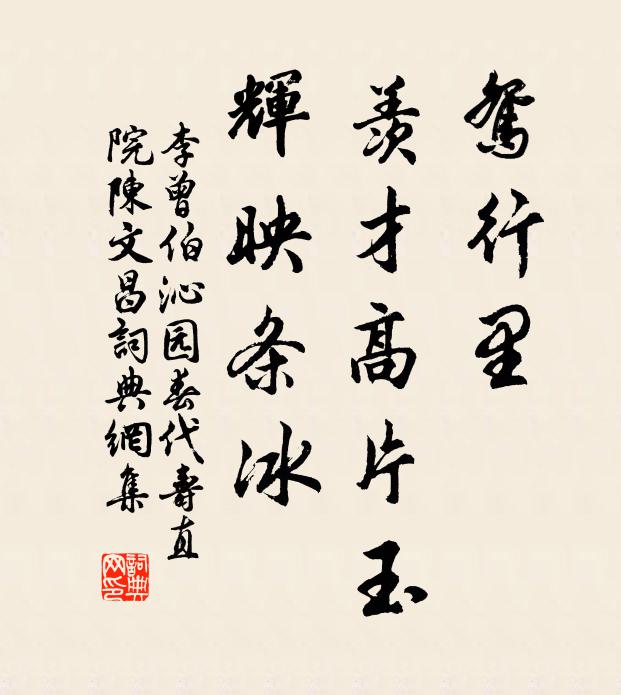 鴛行里
羨才高片玉
輝映条冰
李曾伯沁园春代壽直
院陳文昌詞典網集
詞典
网印